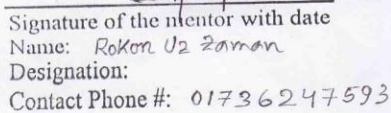 Signature of the mentor with date
Name: Rokon Uz Zaman
Designation:
Contact Phone #: 01736247593